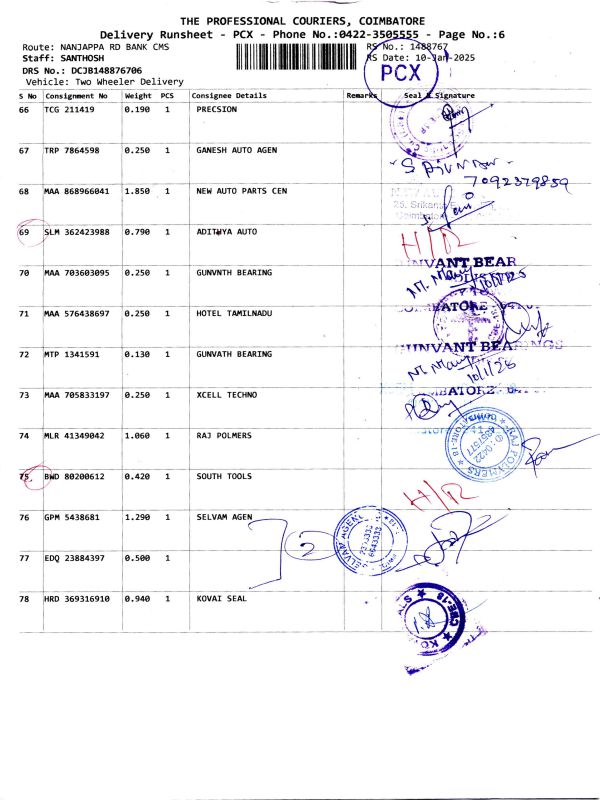 THE PROFESSIONAL COURIERS, COIMBATORE
Delivery Runsheet - PCX - Phone No.:0422-3505555 - Page No.:6
Route: NANJAPPA RD BANK CMS
RS No.: 1488767
Staff: SANTHOSH
RS Date: 10-Jan-2025
DRS No.: DCJB148876706
PCX
Vehicle: Two Wheeler Delivery
S No Consignment No Weight PCS Consignee Details Remarks Seal & Signature
66 TCG 211419 0.190 1 PRECSION
67 TRP 7864598 0.250 1 GANESH AUTO AGEN
7092379859
68 MAA 868966041 1.850 1 NEW AUTO PARTS CEN
25, Srikan
Coimbato
69 SLM 362423988 0.790 1 ADITHYA AUTO H/R
UNVANT BEAR
70 MAA 703603095 0.250 1 GUNVNTH BEARING
71 MAA 576438697 0.250 1 HOTEL TAMILNADU
MBATORE
UNVANT BEARINGS
72 MTP 1341591 0.130 1 GUNVATH BEARING
10/1/25
73 MAA 705833197 0.250 1 XCELL TECHNO
MBATORE
74 MLR 41349042 1.060 1 RAJ POLMERS
RAJ POLYMERS
75 BWD 80200612 0.420 1 SOUTH TOOLS H/R
76 GPM 5438681 1.290 1 SELVAM AGEN
2
77 EDQ 23884397 0.500 1
78 HRD 369316910 0.940 1 KOVAI SEAL
CBE-18